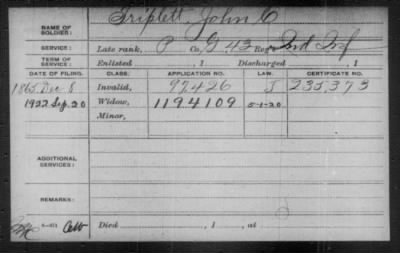 NAME OF SOLDIER: Triplett, John C
SERVICE: Late rank, P Co. G 43 Reg't Ind Inf
TERM OF SERVICE: Enlisted , 1 Discharged , 1
DATE OF FILING. CLASS. APPLICATION NO. LAW. CERTIFICATE NO.
1865 Dec 8 Invalid, 97,426 J 235,373
1922 Sep. 20 Widow, 1194109 5-1-20
Minor,
ADDITIONAL SERVICES:
REMARKS:
Died , 1 , at